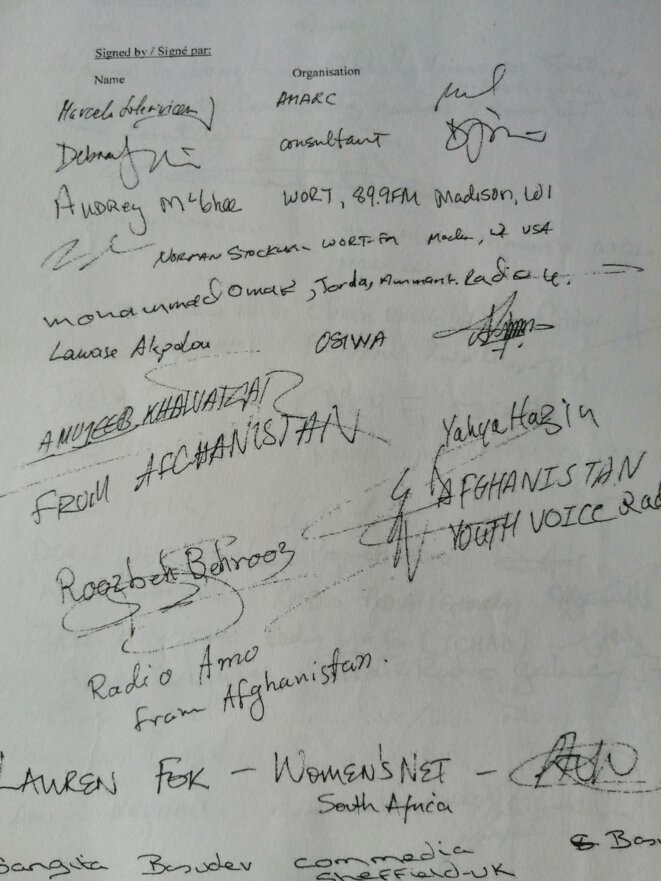 Signed by / Signé par:
Name Organisation
Marcelo AMARC
Debra consultant
AUDREY McGhee WORT, 89.9FM Madison, WI
NORMAN STOCKWELL WORT-FM WI USA
mohammed Omar, Jorda, Radio
Lawase Akpolou OSIWA
AMUJEEB KHALVATGAR
FROM AFGHANISTAN
Yahya
AFGHANISTAN
YOUTH VOICE Rad
Roozbeh Behrooz
Radio Amo
from Afghanistan.
LAUREN FOK - WOMEN'SNET -
South Africa
Sangita Basudev commedia Basu
Sheffield-UK